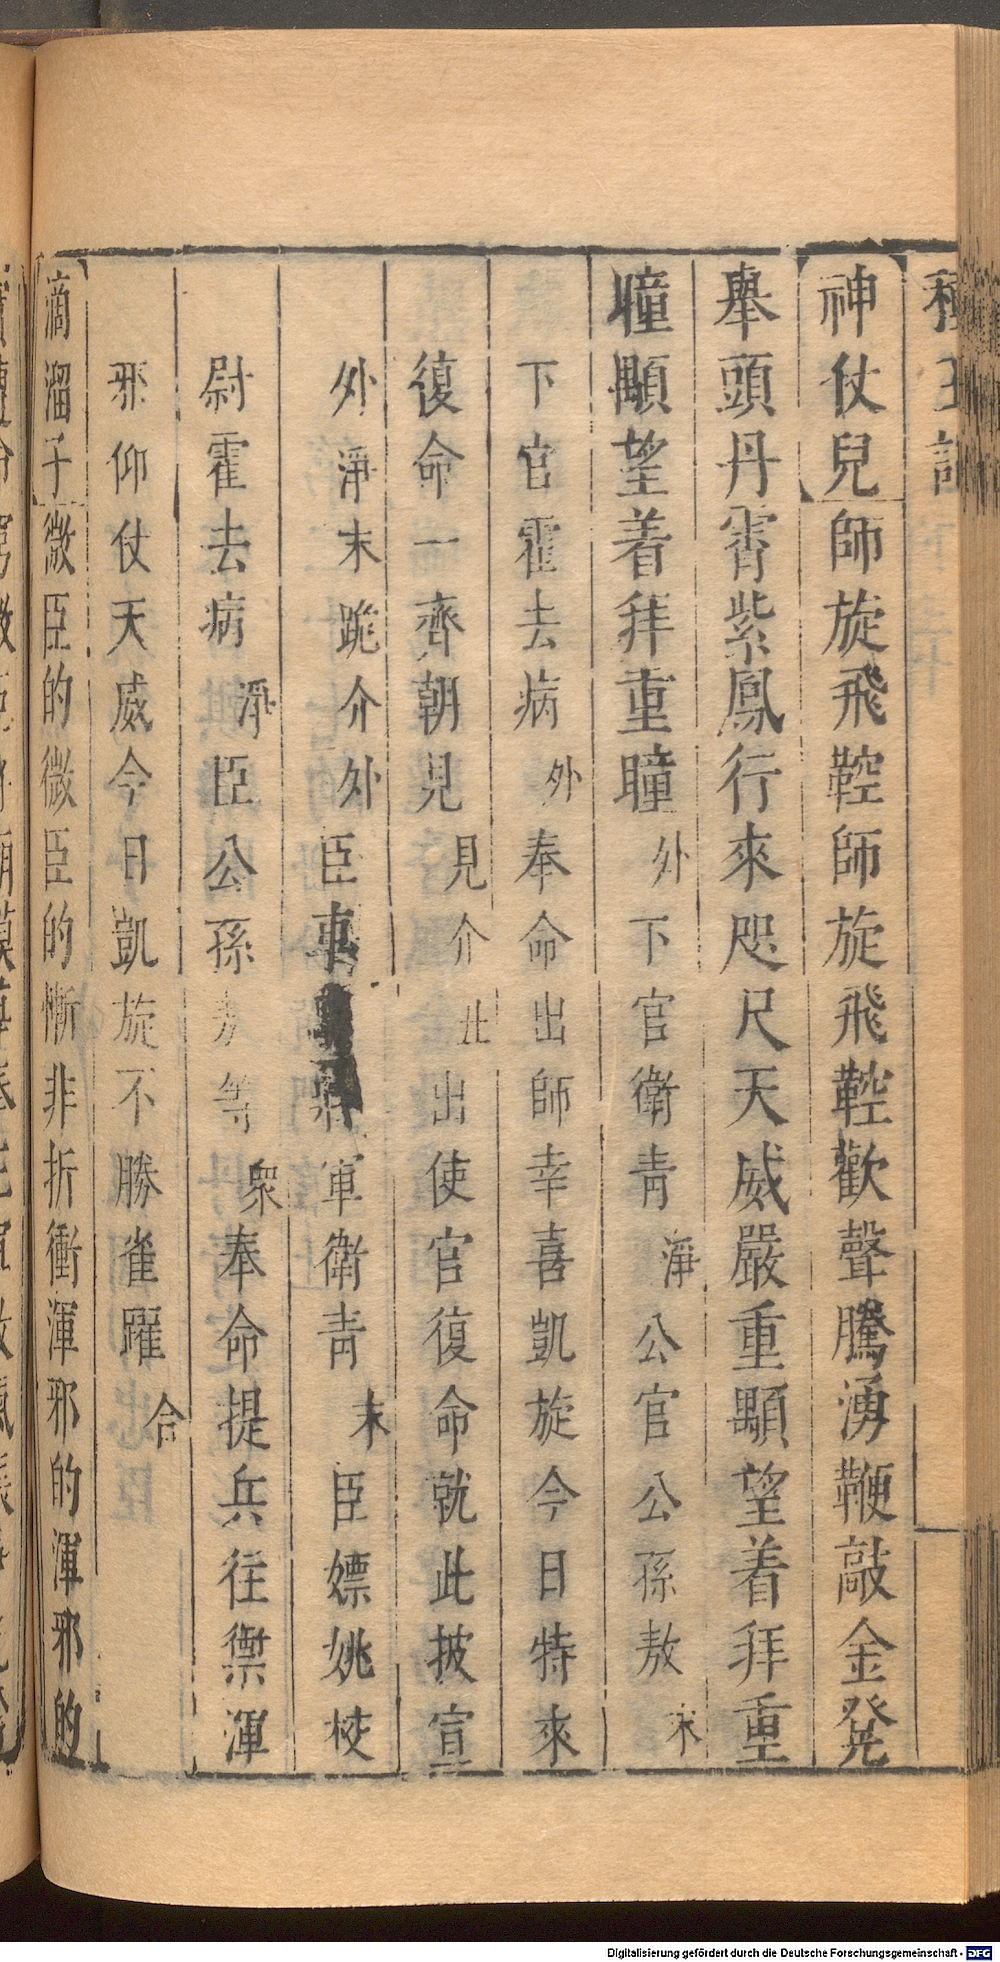 種玉記
神仗兒師旋飛鞚師旋飛鞚歡聲騰湧鞭敲金凳
舉頭丹霄紫鳳行來咫尺天威嚴重顒望着拜重
瞳顒望着拜重瞳外下官衛青淨公官公孫敖末
下官霍去病外奉命出師幸喜凱旋今日特來
復命一齊朝見見介北出使官復命就此披宣
外淨末跪介外臣車軍衛青末臣嫖姚校
尉霍去病淨臣公孫等衆奉命提兵往禦渾
邪仰仗天威今日凱旋不勝雀躍合
滴溜子微臣的微臣的慚非折衝渾邪的渾邪的
Digitalisierung gefördert durch die Deutsche Forschungsgemeinschaft - DFG